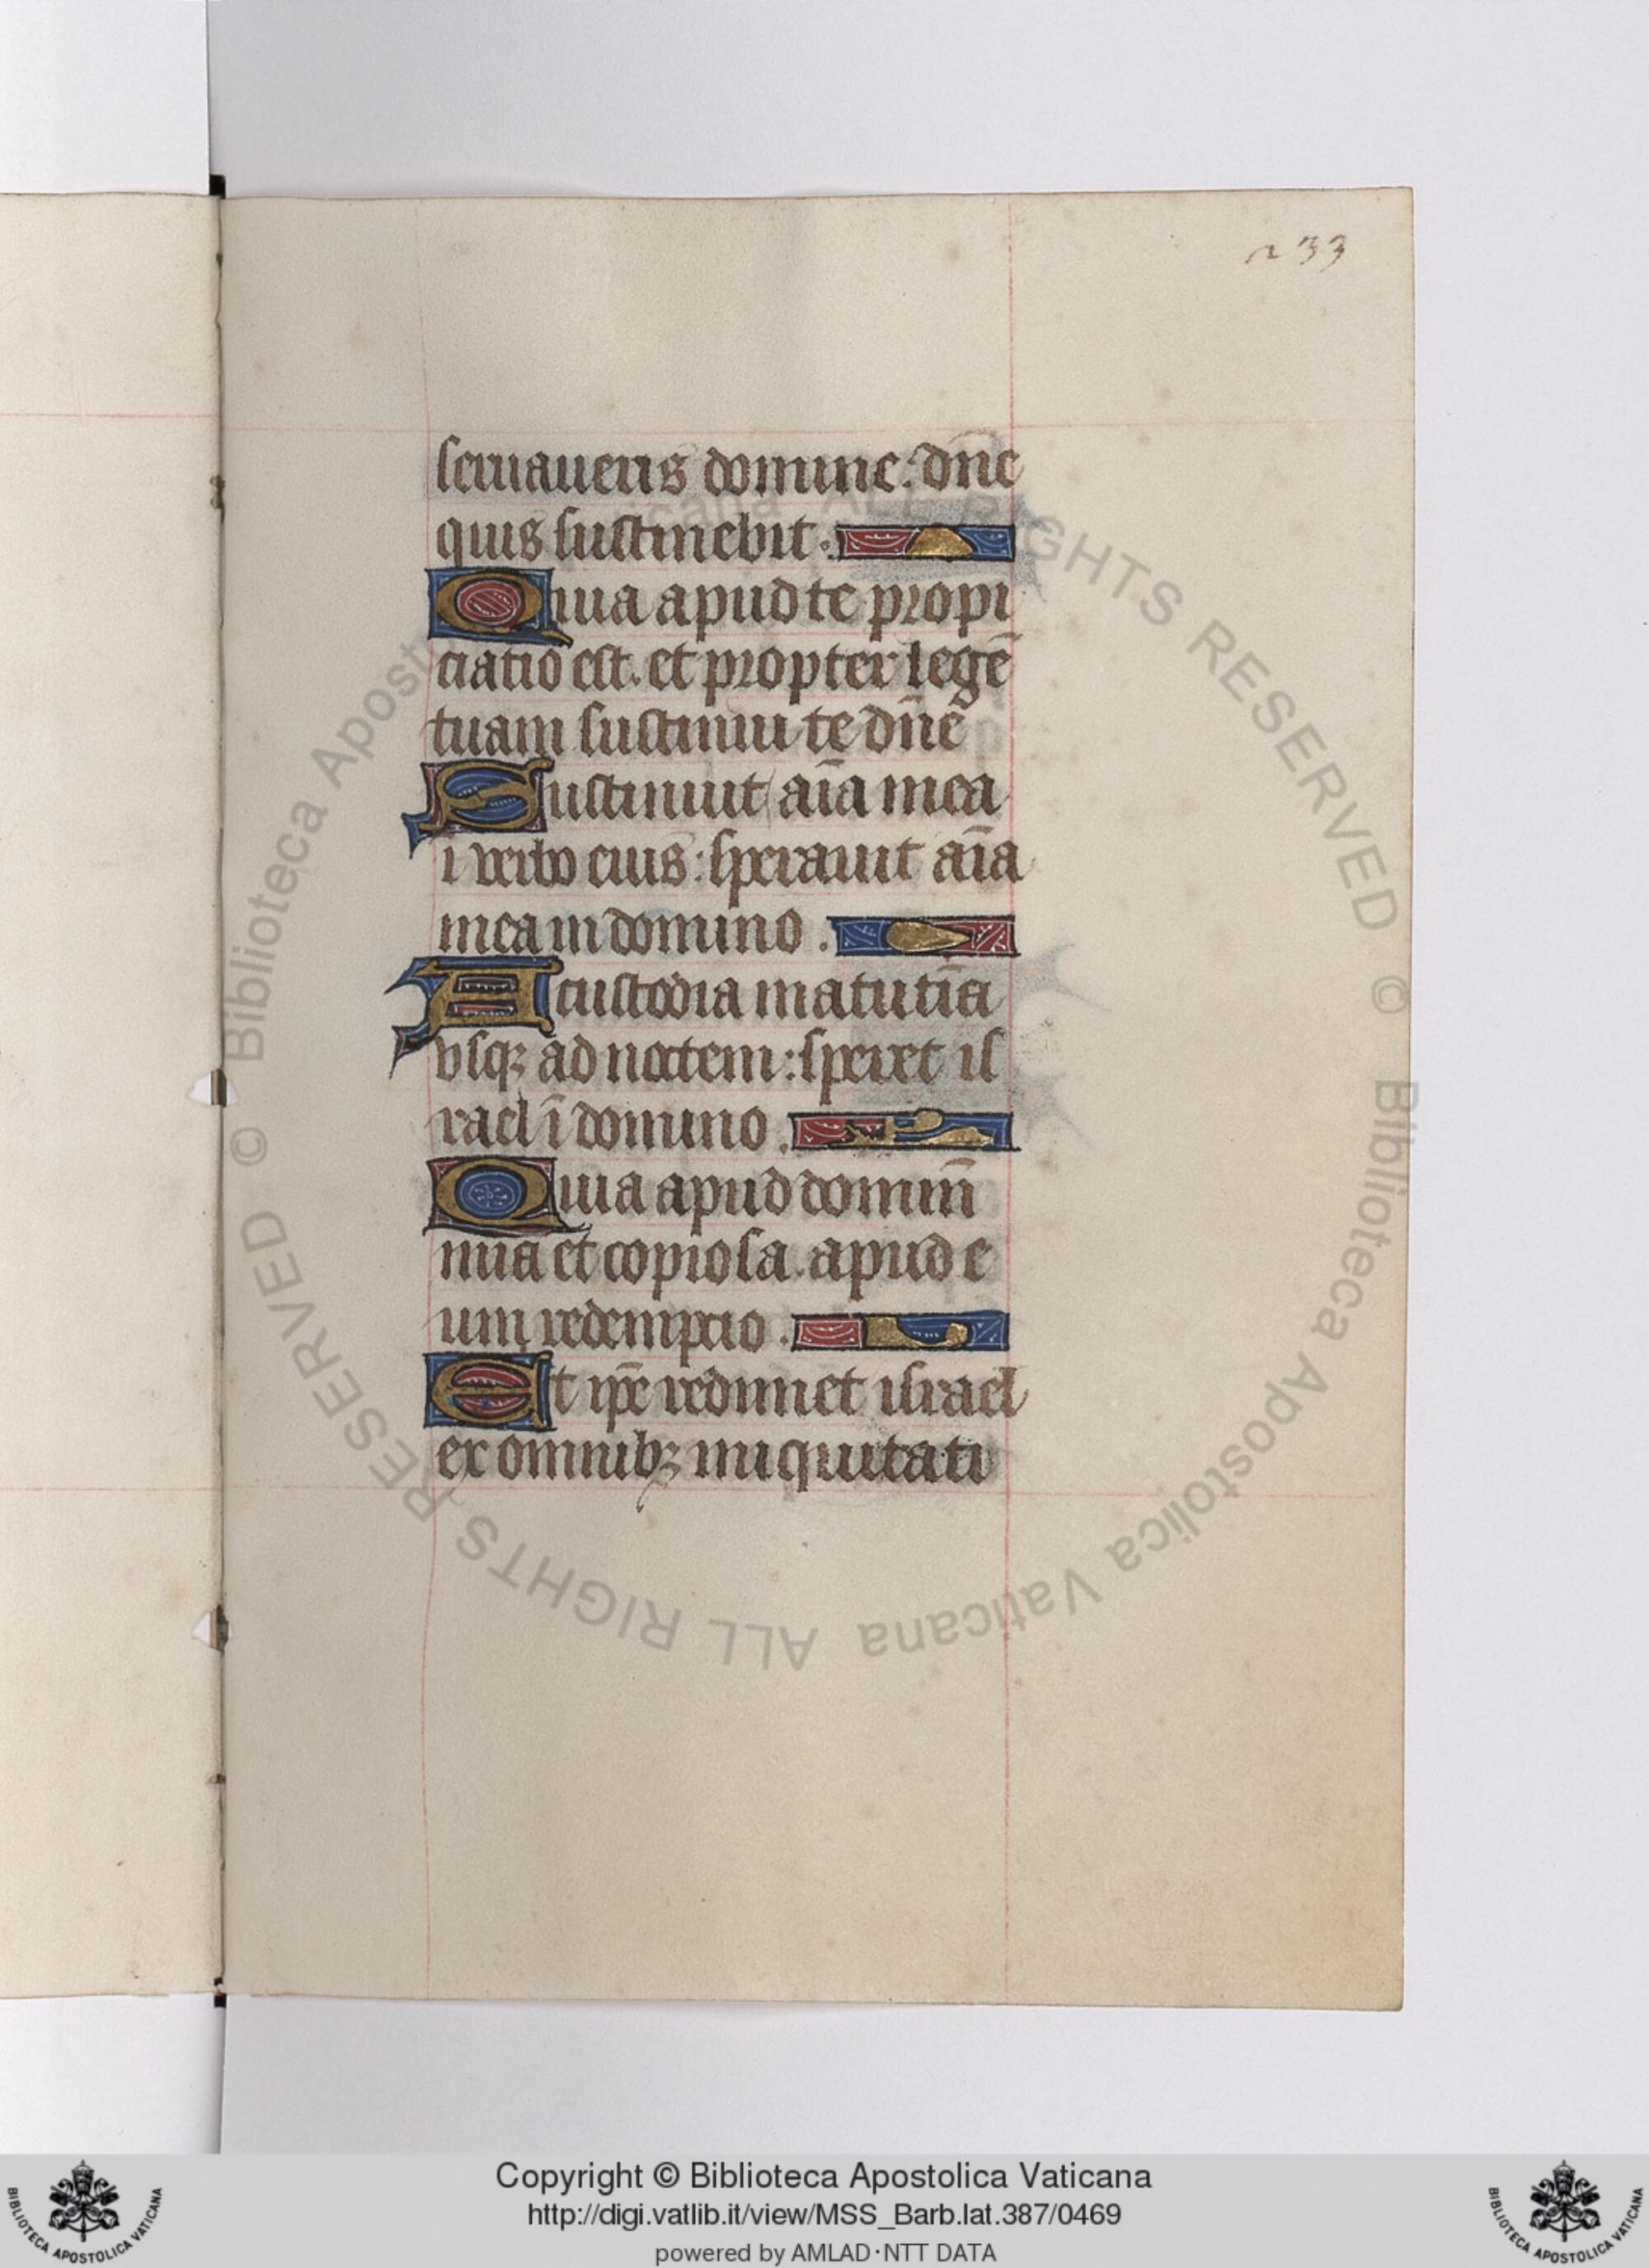 233
seruaueris domine: dn̄e
quis sustinebit.
Quia apud te propi
ciatio est. et propter legē
tuam sustinui te dn̄e
Sustinuit aīa mea
ī verbo eius: sperauit aīa
mea in domino.
A custodia matutīa
vsqꝫ ad noctem: speret is
rael ī domino.
Quia apud dominū
mīa et copiosa. apud e
um redempcio.
Et ip̄e redimet israel
ex omnibꝫ iniquitati
© Biblioteca Apostolica Vaticana ALL RIGHTS RESERVED © Biblioteca Apostolica Vaticana ALL RIGHTS RESERVED
Copyright © Biblioteca Apostolica Vaticana
http://digi.vatlib.it/view/MSS_Barb.lat.387/0469
powered by AMLAD·NTT DATA
BIBLIOTECA APOSTOLICA VATICANA
BIBLIOTECA APOSTOLICA VATICANA